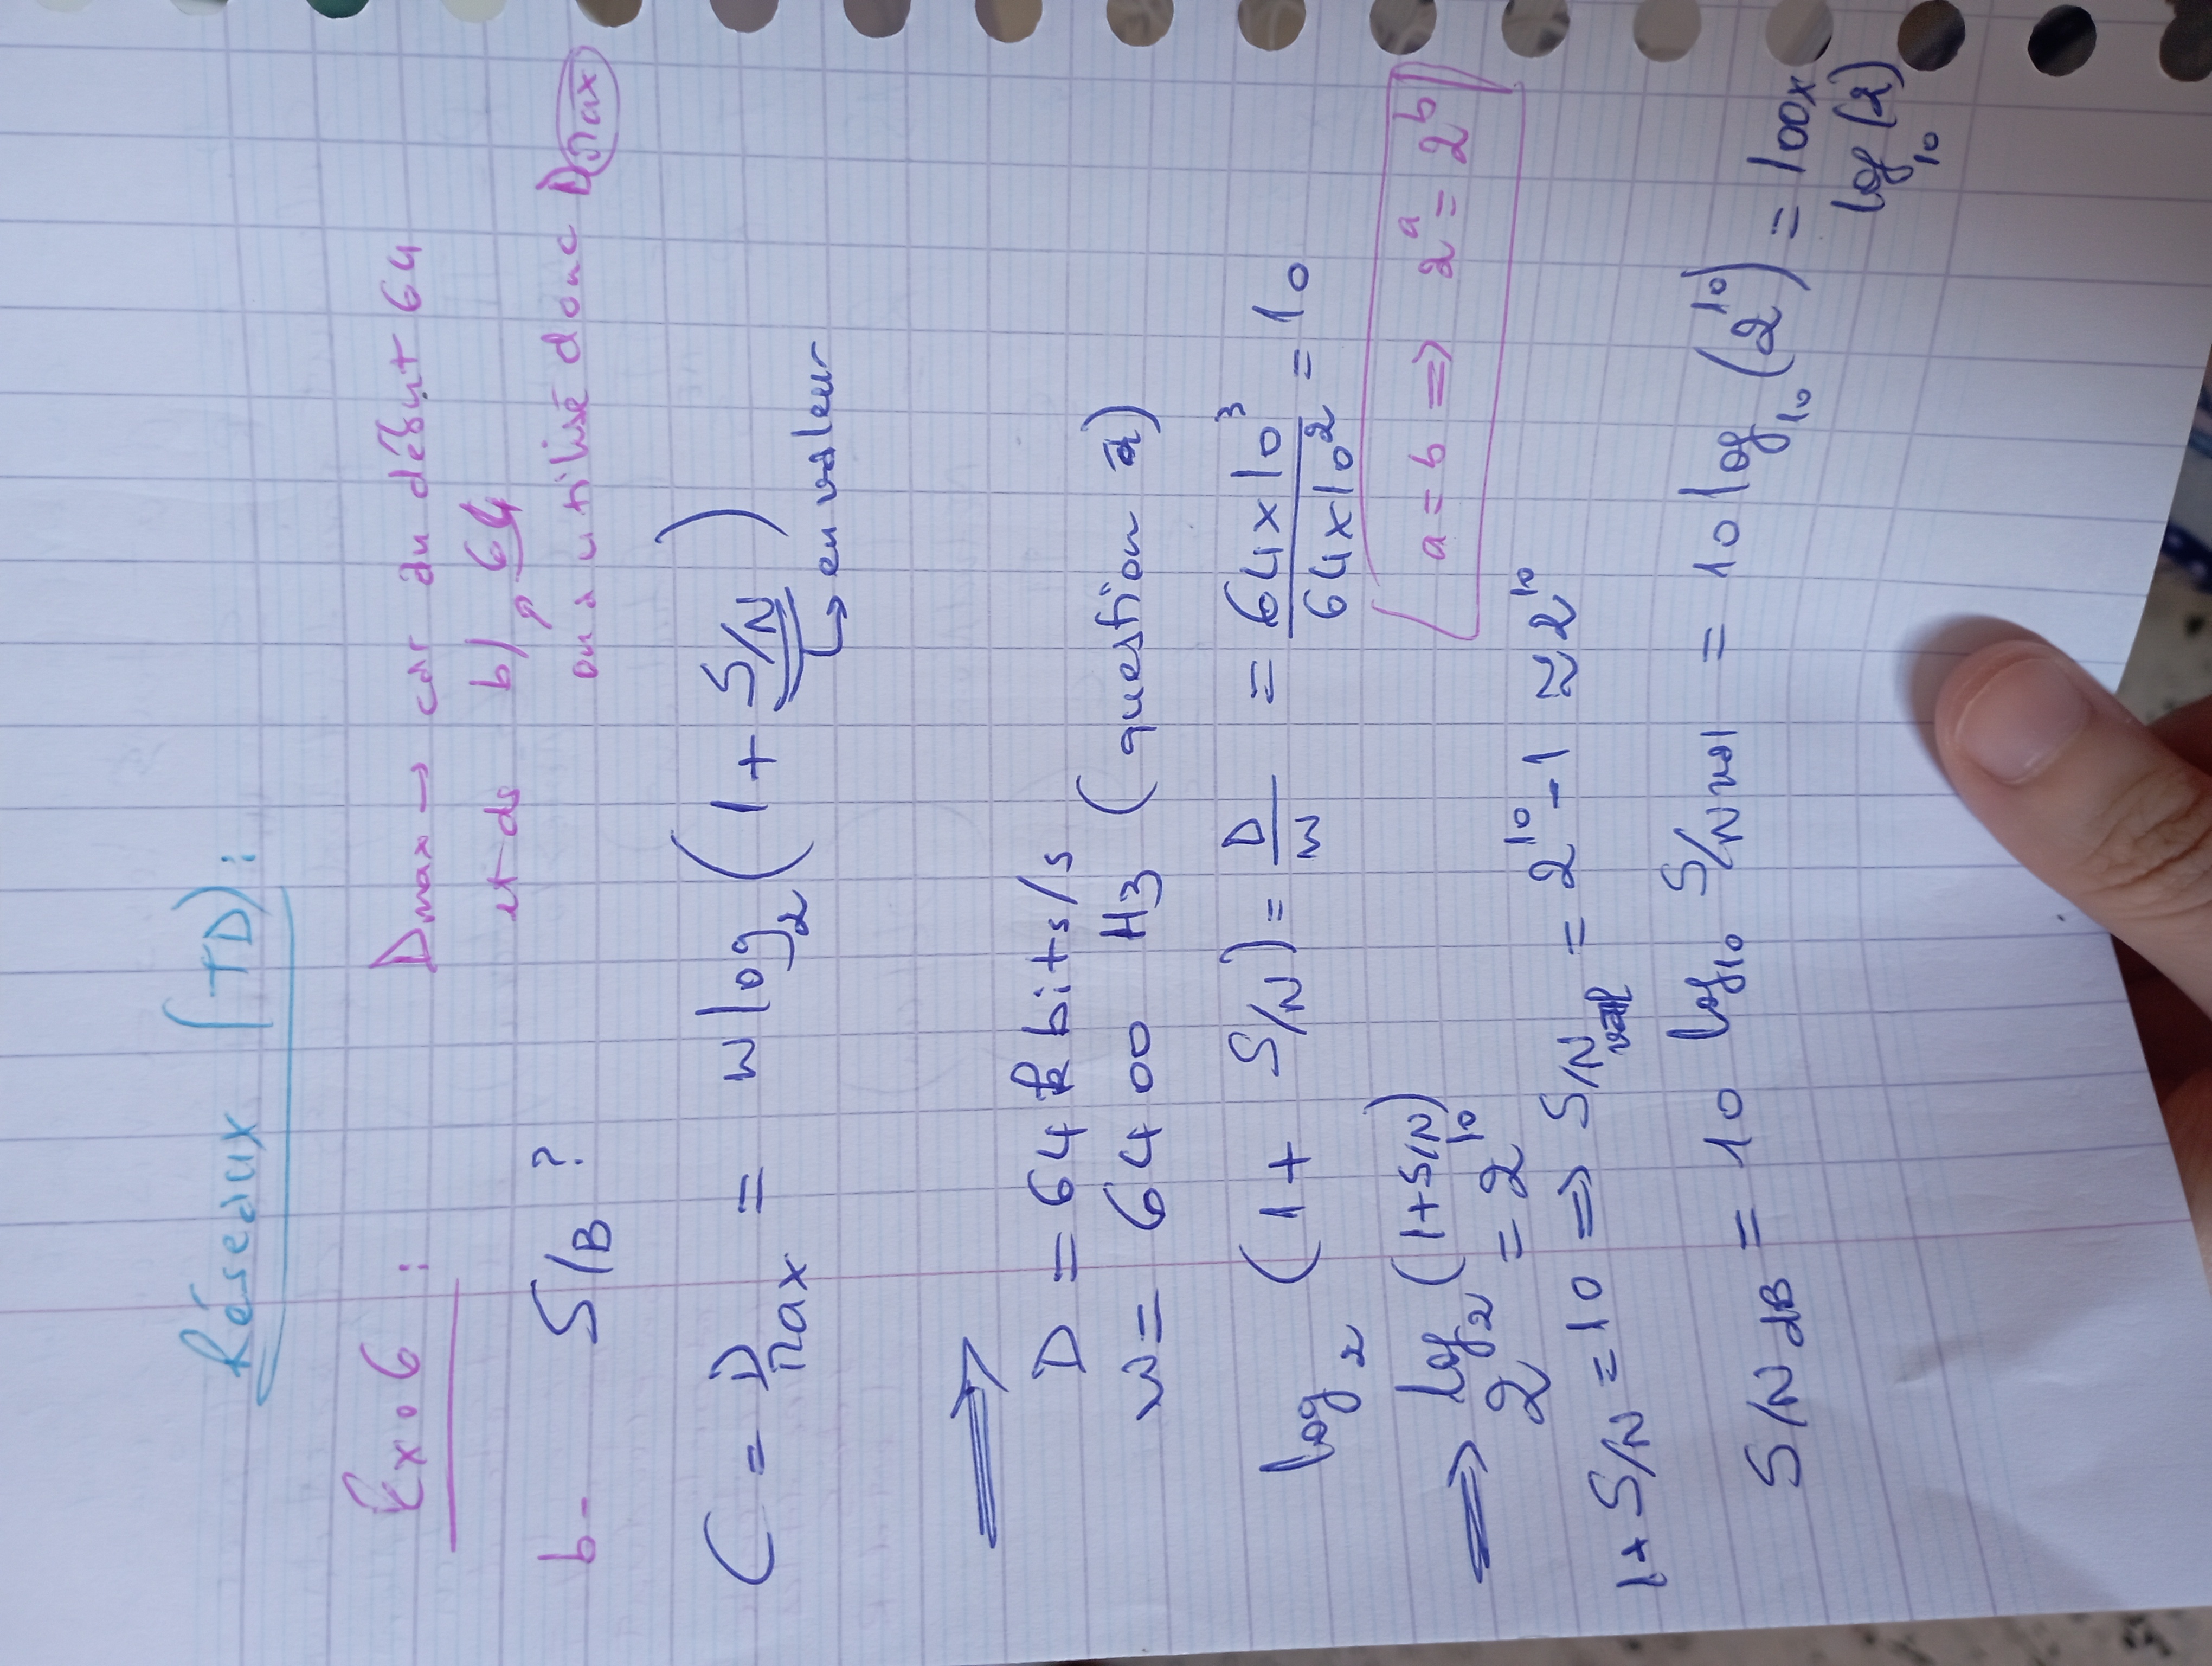 Réseaux (TD):
Exo 6 :
Dmax → car au début 64
et ds b) 64
on a utilisé donc Dmax
b- S/B ?
C = Dmax = W log₂ (1 + S/N)
↳ en valeur
⟹
D = 64 k bits/s
W = 6400 Hz (question a)
log₂ (1 + S/N) = D/W = 64×10³/64×10² = 10
a = b ⟹ 2^a = 2^b
⟹ 2^log₂(1+S/N) = 2^10
1+ S/N = 10 ⟹ S/N val = 2^10 - 1 ≈ 2^10
S/N dB = 10 log₁₀ S/N val = 10 log₁₀ (2^10) = 100x
log₁₀ (2)